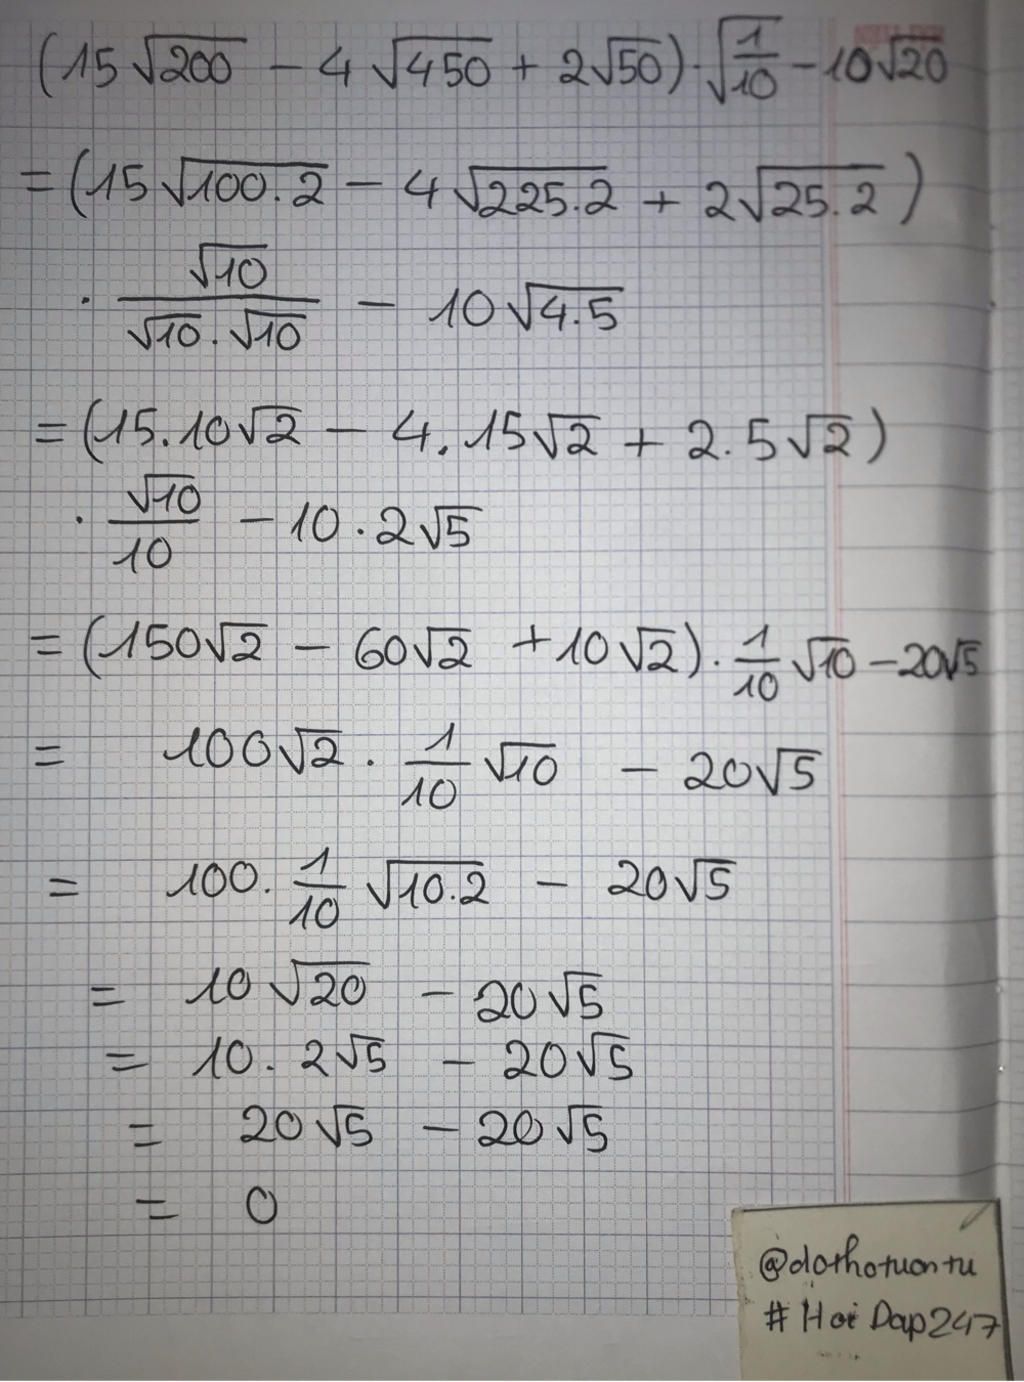 (15√200 - 4√450 + 2√50)·√(1/10) - 10√20
= (15√(100.2) - 4√(225.2) + 2√(25.2))
· √10/(√10.√10) - 10√(4.5)
= (15.10√2 - 4.15√2 + 2.5√2)
· √10/10 - 10·2√5
= (150√2 - 60√2 + 10√2)·1/10 √10 - 20√5
= 100√2 · 1/10 √10 - 20√5
= 100·1/10 √(10.2) - 20√5
= 10√20 - 20√5
= 10. 2√5 - 20√5
= 20√5 - 20√5
= 0
@dothotuontu
# Hoi Dap247